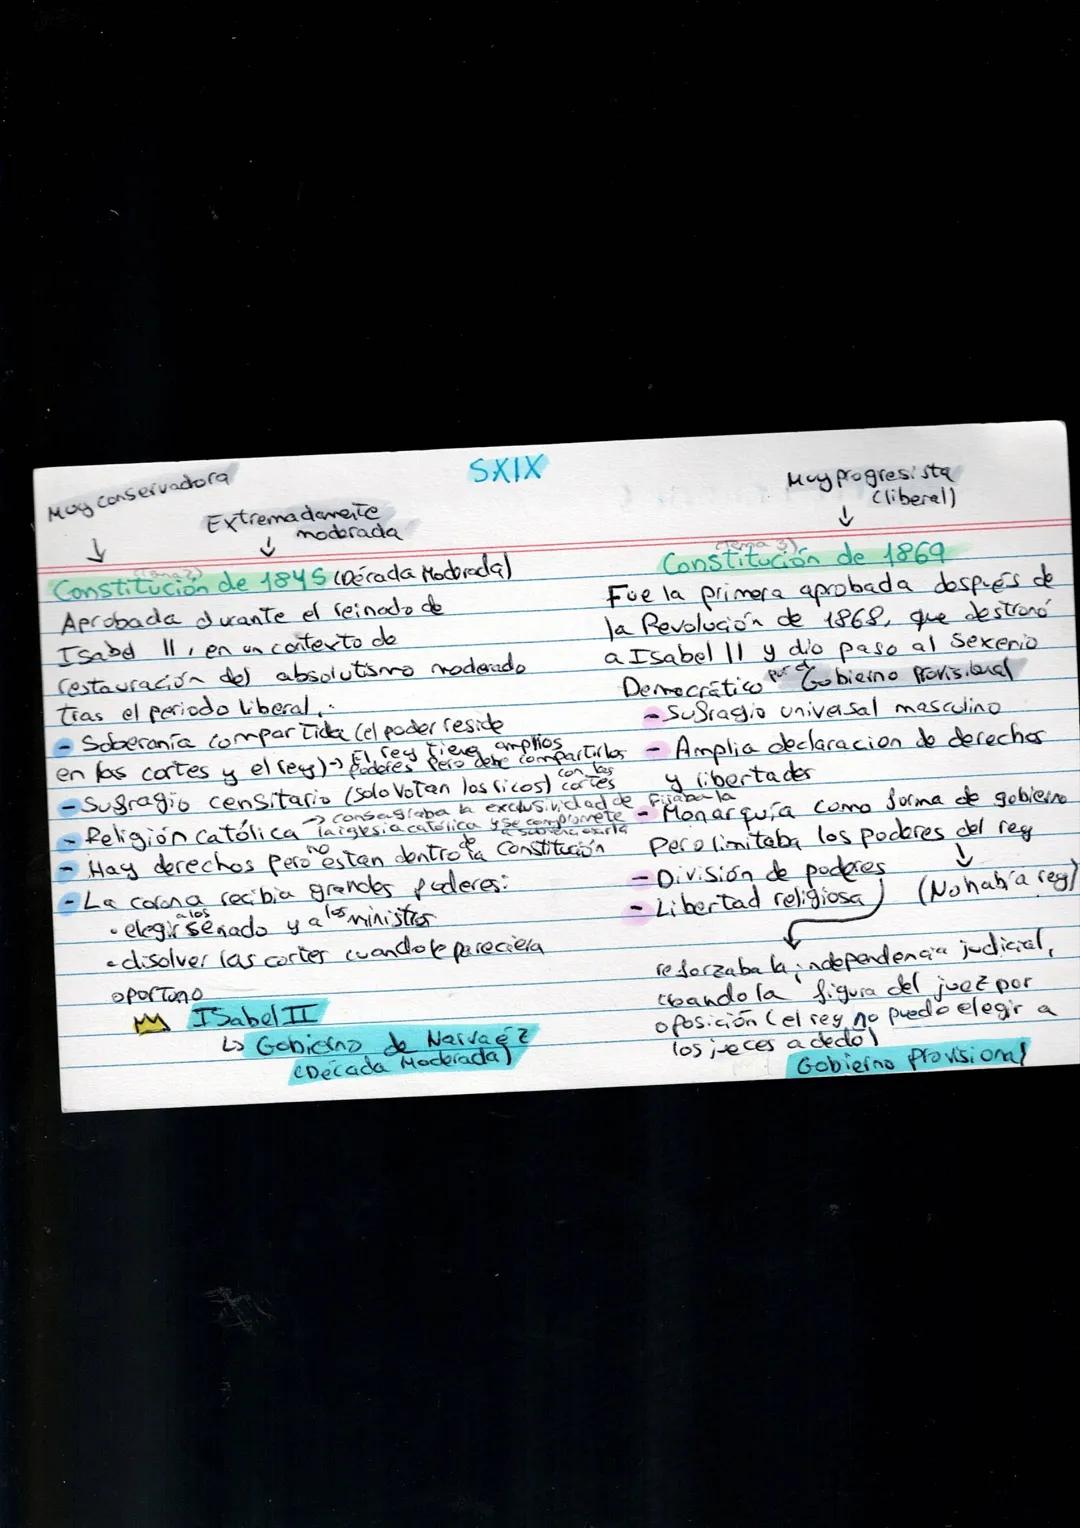 SXIX
Muy conservadora
Extremadamente
moderada
(Tema 2)
Constitución de 1845 (Década Moderada)
Aprobada durante el reinado de
Isabel II, en un contexto de
restauración del absolutismo moderado
tras el periodo liberal.
- Soberanía compartida (el poder reside
en las cortes y el rey) → El rey tiene amplios
poderes pero debe compartirlos
con las cortes
- Sufragio censitario (solo votan los ricos)
- Religión católica → consagraba la exclusividad de
la iglesia católica y se compromete
a subvencionarla
- Hay derechos pero no estan dentro de la Constitución
- La corona recibia grandes poderes:
• elegir a los senado y a los ministros
• disolver las cortes cuando le pareciera
oportuno
Isabel II
↳ Gobierno de Narvaéz
(Década Moderada)
Muy progresista
(liberal)
(Tema 3)
Constitución de 1869
Fue la primera aprobada después de
la Revolución de 1868, que destronó
a Isabel II y dio paso al Sexenio
Democrático por el Gobierno Provisional
- Sufragio universal masculino
- Amplia declaracion de derechos
y libertades
- Fijaba la Monarquía como forma de gobierno
Pero limitaba los poderes del rey
(No había rey)
- División de poderes
- Libertad religiosa
reforzaba la independencia judicial,
creando la figura del juez por
oposición (el rey no puede elegir a
los jueces a dedo)
Gobierno provisional